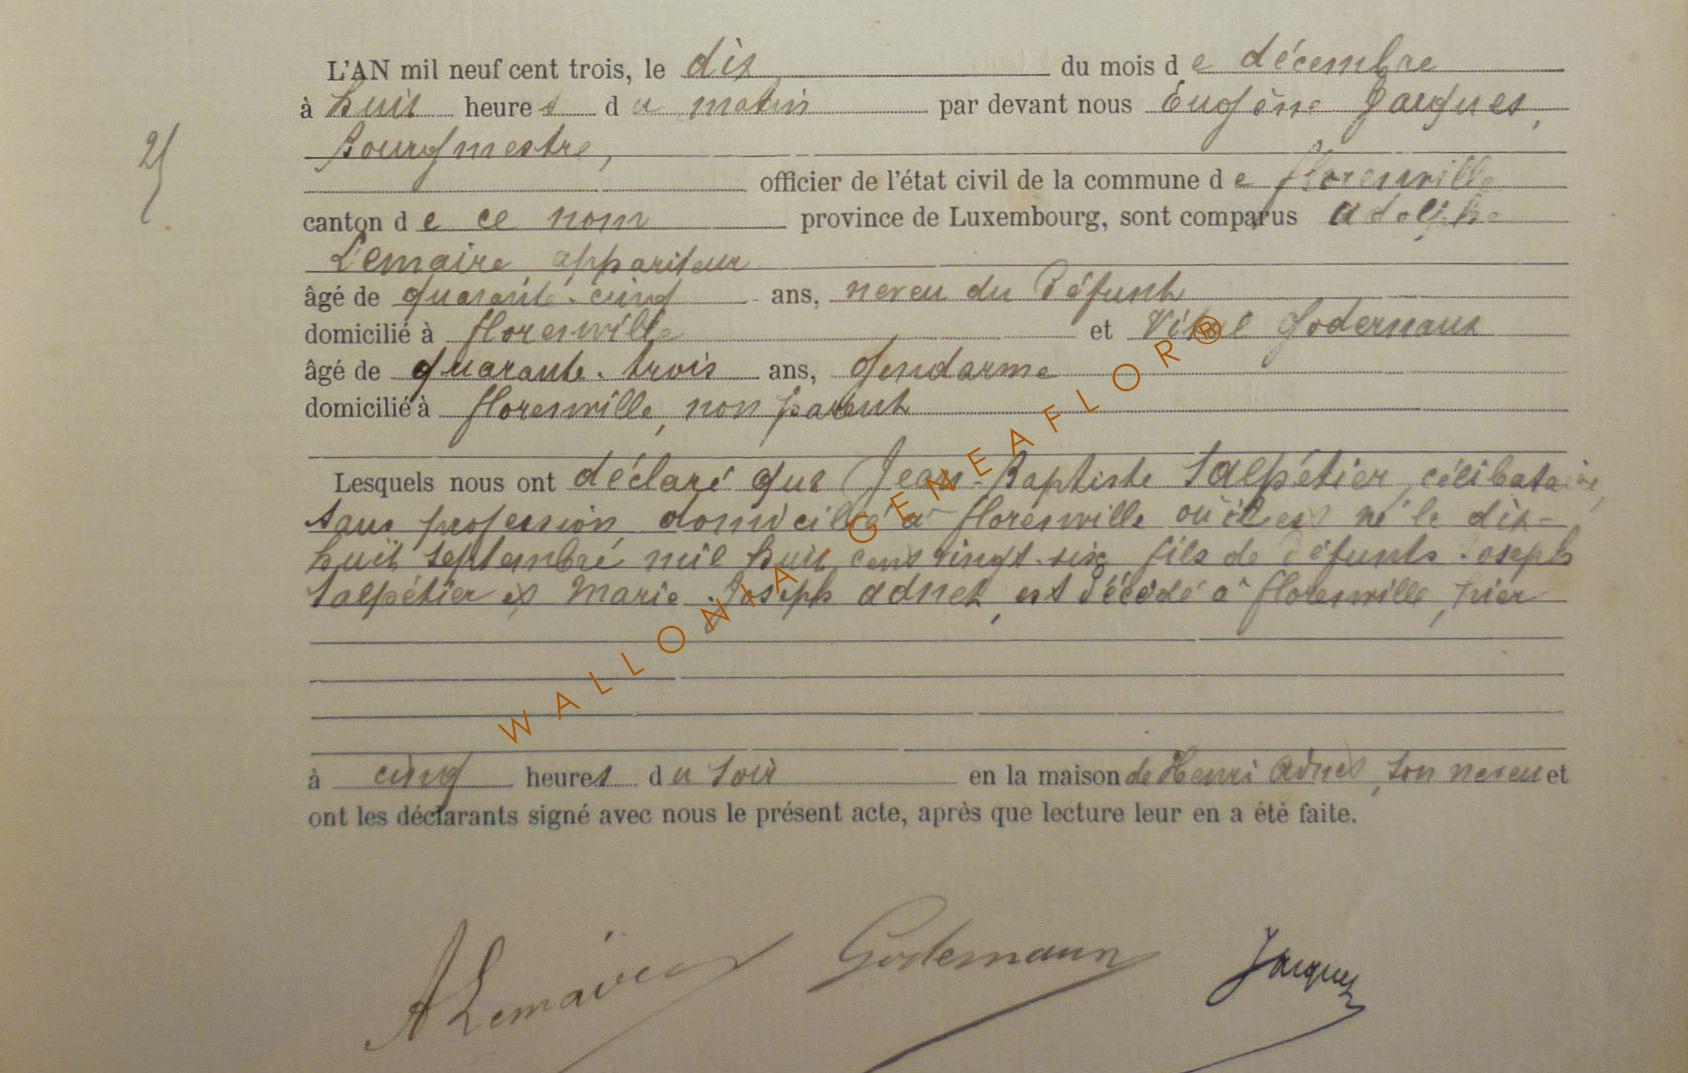 L'AN mil neuf cent trois, le dix du mois de décembre
à huit heures du matin par devant nous Eugène Jacques,
Bourgmestre,
officier de l'état civil de la commune de florenville
canton de ce nom province de Luxembourg, sont comparus adolphe
Lemaire, appariteur
âgé de quarante-cinq ans, neveu du défunt
domicilié à florenville et Vital Godernaux
âgé de quarante-trois ans, Gendarme
domicilié à florenville, non parent
Lesquels nous ont déclaré que Jean-Baptiste Salpétier, célibataire,
sans profession, domicilié à florenville où il est né le dix-
huit septembre mil huit cent vingt-six fils de défunts Joseph
Salpétier et Marie Joseph adnet, est décédé à florenville, hier
à cinq heures du soir en la maison de Henri Adnet, son neveu et
ont les déclarants signé avec nous le présent acte, après que lecture leur en a été faite.
A Lemaire Godernaux Jacques
WALLONIA GENEAFLOR®